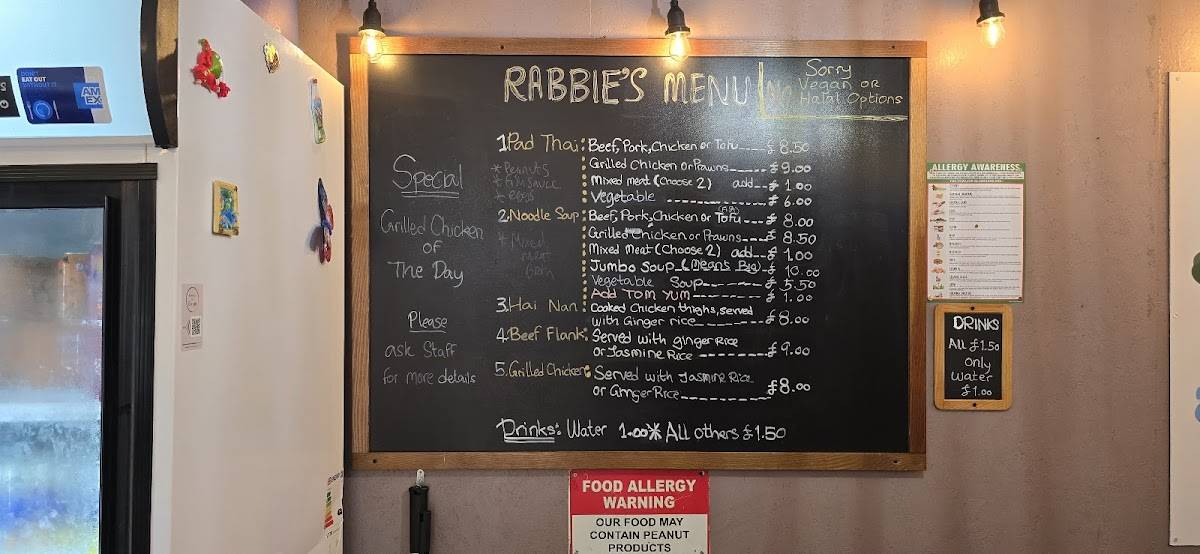 DON'T
EAT OUT
WITHOUT IT
AM
EX
RABBIE'S MENU
Sorry
No Vegan OR
Halal Options
Special
Grilled Chicken
OF
The Day
Please
ask Staff
for more details
1. Pad Thai: Beef, Pork, Chicken or Tofu £8.50
* Peanuts
* Fish Sauce
* Eggs
Grilled Chicken or Prawns £9.00
Mixed meat (Choose 2) add £1.00
Vegetable £6.00
2. Noodle Soup: Beef, Pork, Chicken or Tofu £8.00
* Mixed
meat
Grilled Chicken or Prawns £8.50
Mixed Meat (Choose 2) add £1.00
Jumbo Soup (Means Big) £10.00
Vegetable Soup £5.50
Add TOM YUM £1.00
3. Hai Nan: Cooked Chicken thighs, served
with Ginger rice £8.00
4. Beef Flank: Served with ginger Rice
or Jasmine Rice £9.00
5. Grilled Chicken: Served with Jasmine Rice
or Ginger Rice £8.00
Drinks: Water 1.00 * All others £1.50
ALLERGY AWARENESS
DRINKS
All £1.50
only
water
£1.00
FOOD ALLERGY
WARNING
OUR FOOD MAY
CONTAIN PEANUT
PRODUCTS